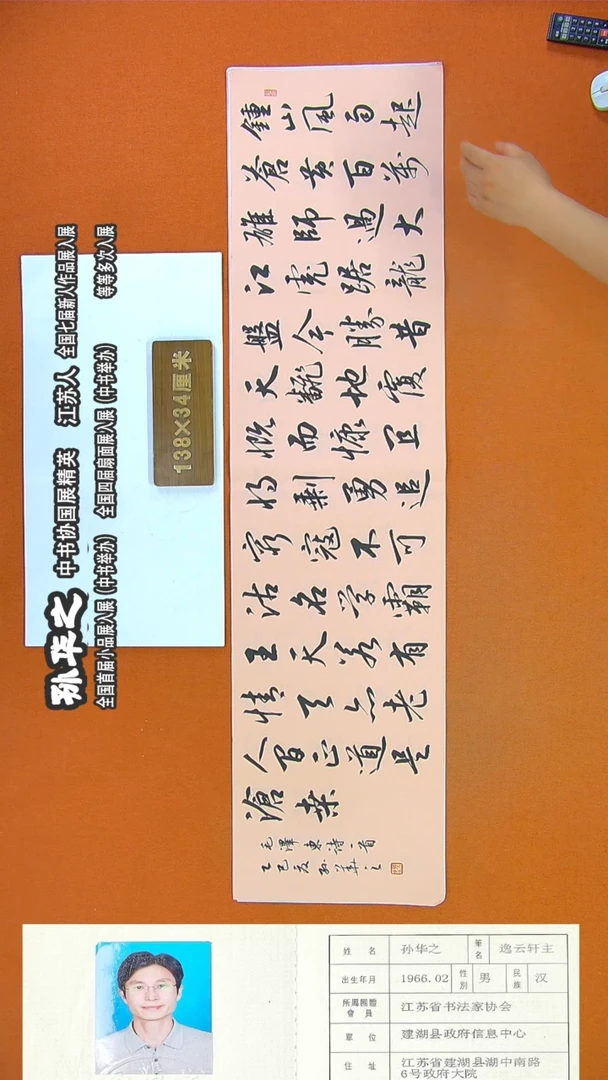 孙华之 中书协国展精英 江苏人 全国七届新人作品展入展
全国首届小品展入展（中书举办） 全国四届扇面展入展（中书举办） 等等多次入展
138×34厘米
鍾山風雨起
蒼黃百萬
雄師過大
江虎踞龍
盤今勝昔
天翻地覆
慨而慷宜
將剩勇追
窮寇不可
沽名學霸
王天若有
情天亦老
人間正道是
滄桑
毛澤東詩一首
乙巳夏孫華之
姓名 孙华之 筆名 逸云轩主
出生年月 1966.02 性別 男 民族 汉
所屬團體會員 江苏省书法家协会
單位 建湖县政府信息中心
住址 江苏省建湖县湖中南路
6号政府大院